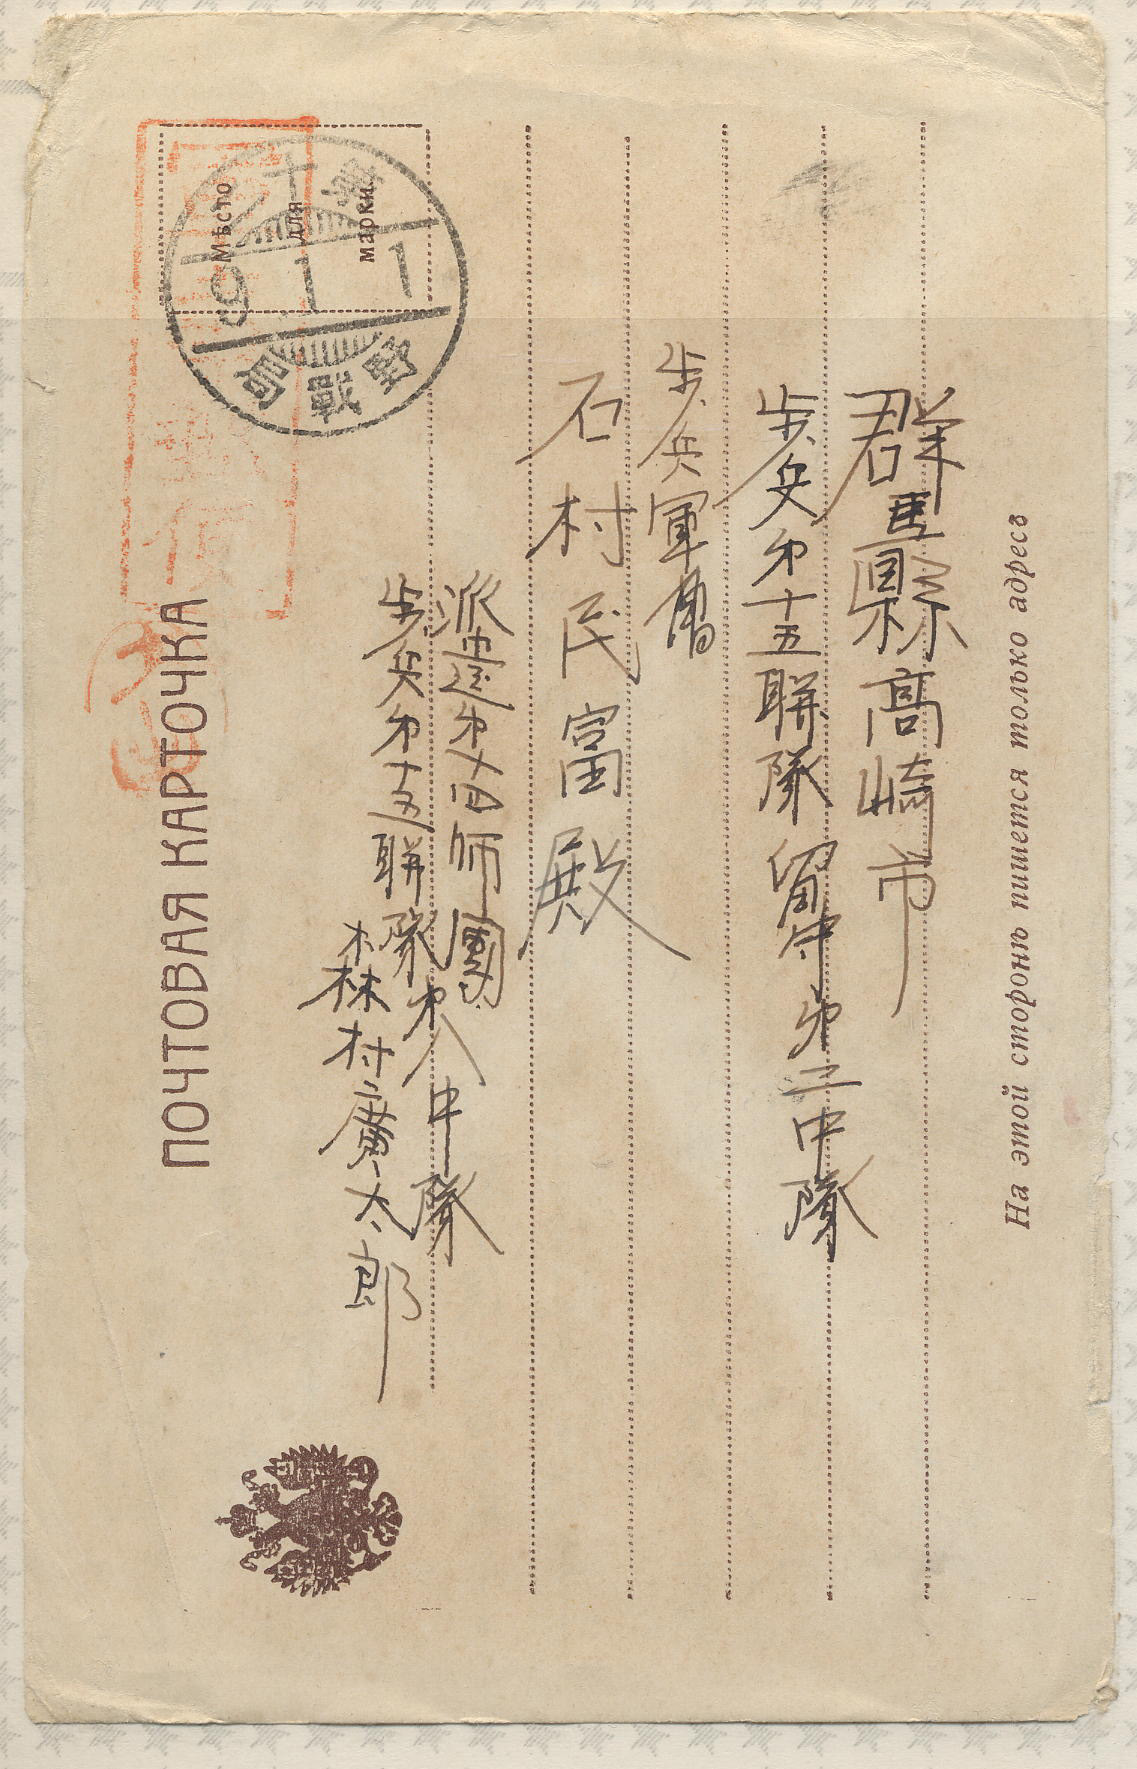 群馬縣高崎市
歩兵第十五聯隊留守第二中隊
歩兵軍曹
石村民富殿
派遣第十四師團
歩兵第十五聯隊第八中隊
森村廣太郎
ПОЧТОВАЯ КАРТОЧКА
Мѣсто
для
марки.
На этой сторонѣ пишется только адресъ
9 1 1
野戰局